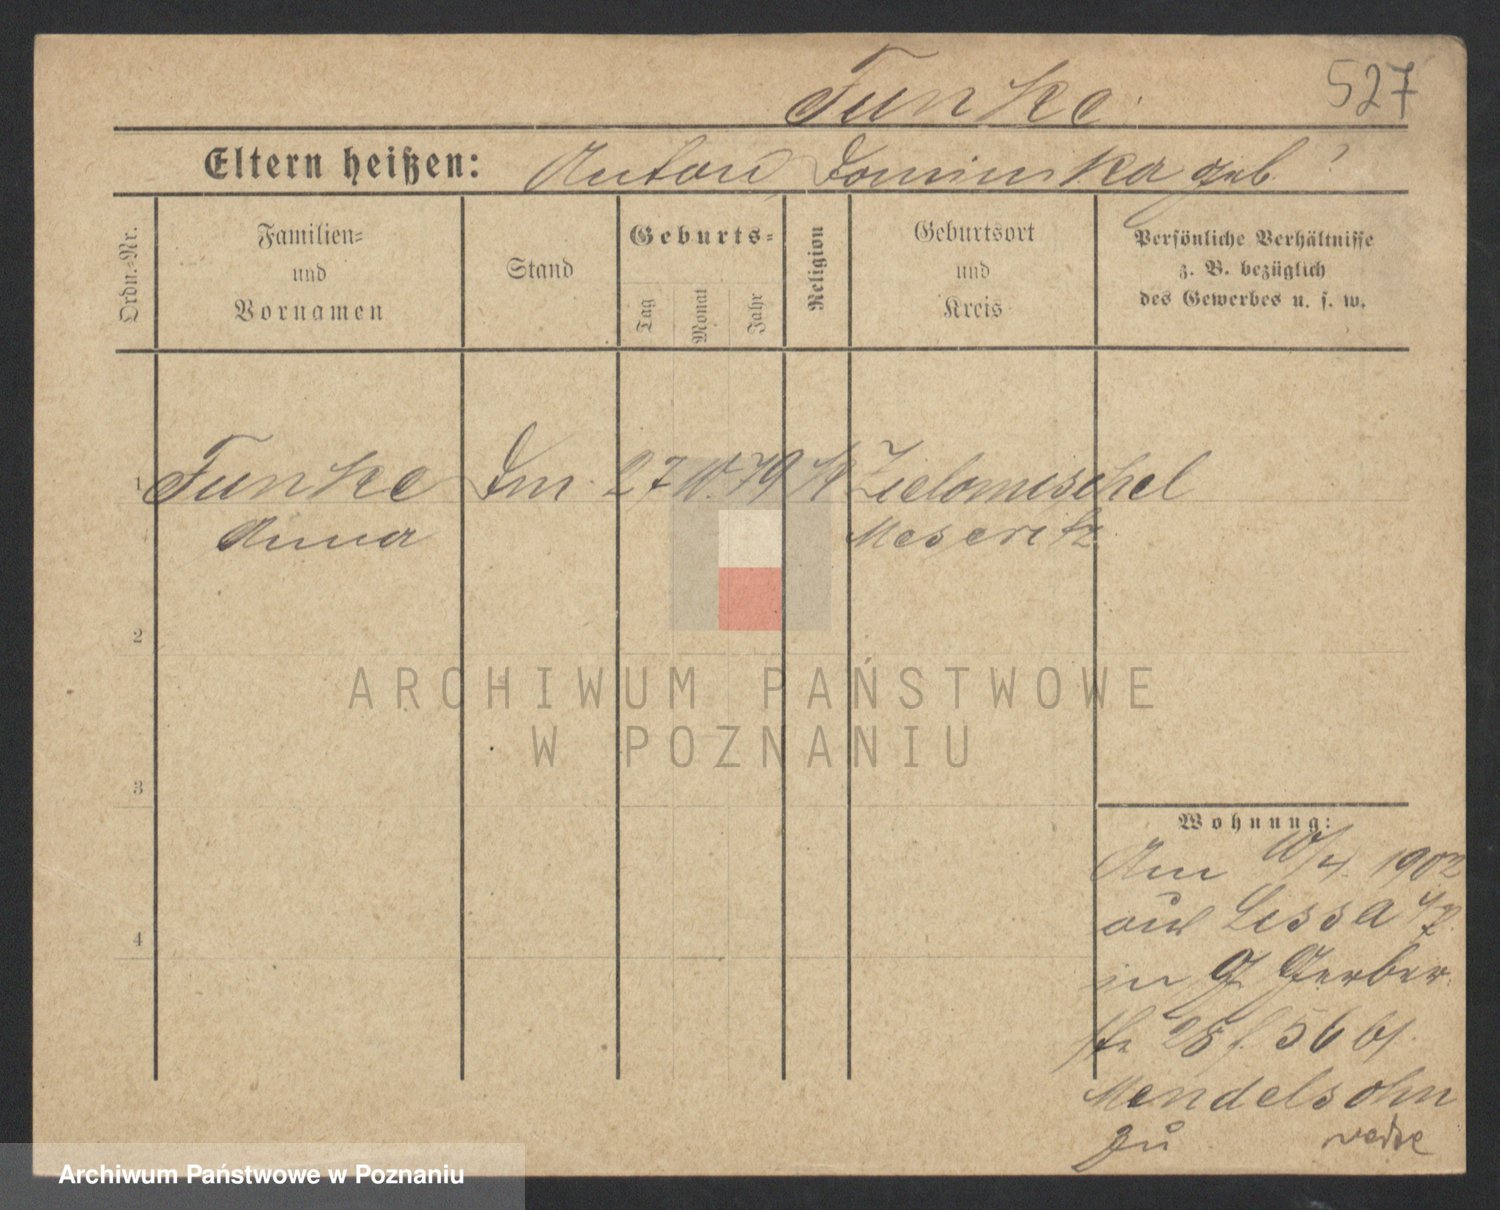 Funke
527
Eltern heißen: Anton, Dominika geb ?
Ordn.-Nr.
Familien-
und
Vornamen
Stand
Geburts-
Tag
Monat
Jahr
Religion
Geburtsort
und
Kreis
Persönliche Verhältnisse
z. B. bezüglich
des Gewerbes u. s. w.
1 Funke Dm. 27 79 K Zielomischel
Anna Meseritz
2
ARCHIWUM PAŃSTWOWE
W POZNANIU
3
Wohnung:
Am 10/4. 1902
aus Lissa
in G. Gerber
str 28 f. 56 bj.
Mendelsohn
zu
Archiwum Państwowe w Poznaniu